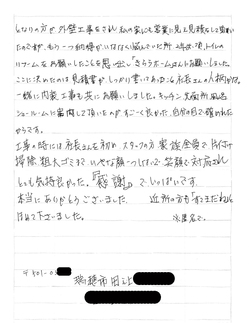 となりの方が外壁工事をされ 私の家にも営業に見え見積をして頂い
たのですが、もう一つ納得がいかなく悩んでいた所、以前、トイレの
リフォームをお願いしたことを思い出し「きららホームさん」にお願いしました。
ここに決めたのは見積書がしっかり書いてあったこと社長さんの人柄が
一緒に内装工事も共にお願いしました。キッチン、洗面所、風呂
ショールームに案内して頂いたのがすごく良かった。自分の目で確めた
からです。
工事の時には社長さんを初め スタッフの方 家族全員で 片付け
掃除 粗大ゴミまで いやな顔一つしないで 笑顔で対応され
とても気持良かった。『感謝』で いっぱいです。
本当にありがとうございました。 近所の方も
ほめて下さいました。 ※匿名で。
〒501-03
瑞穂市田之上